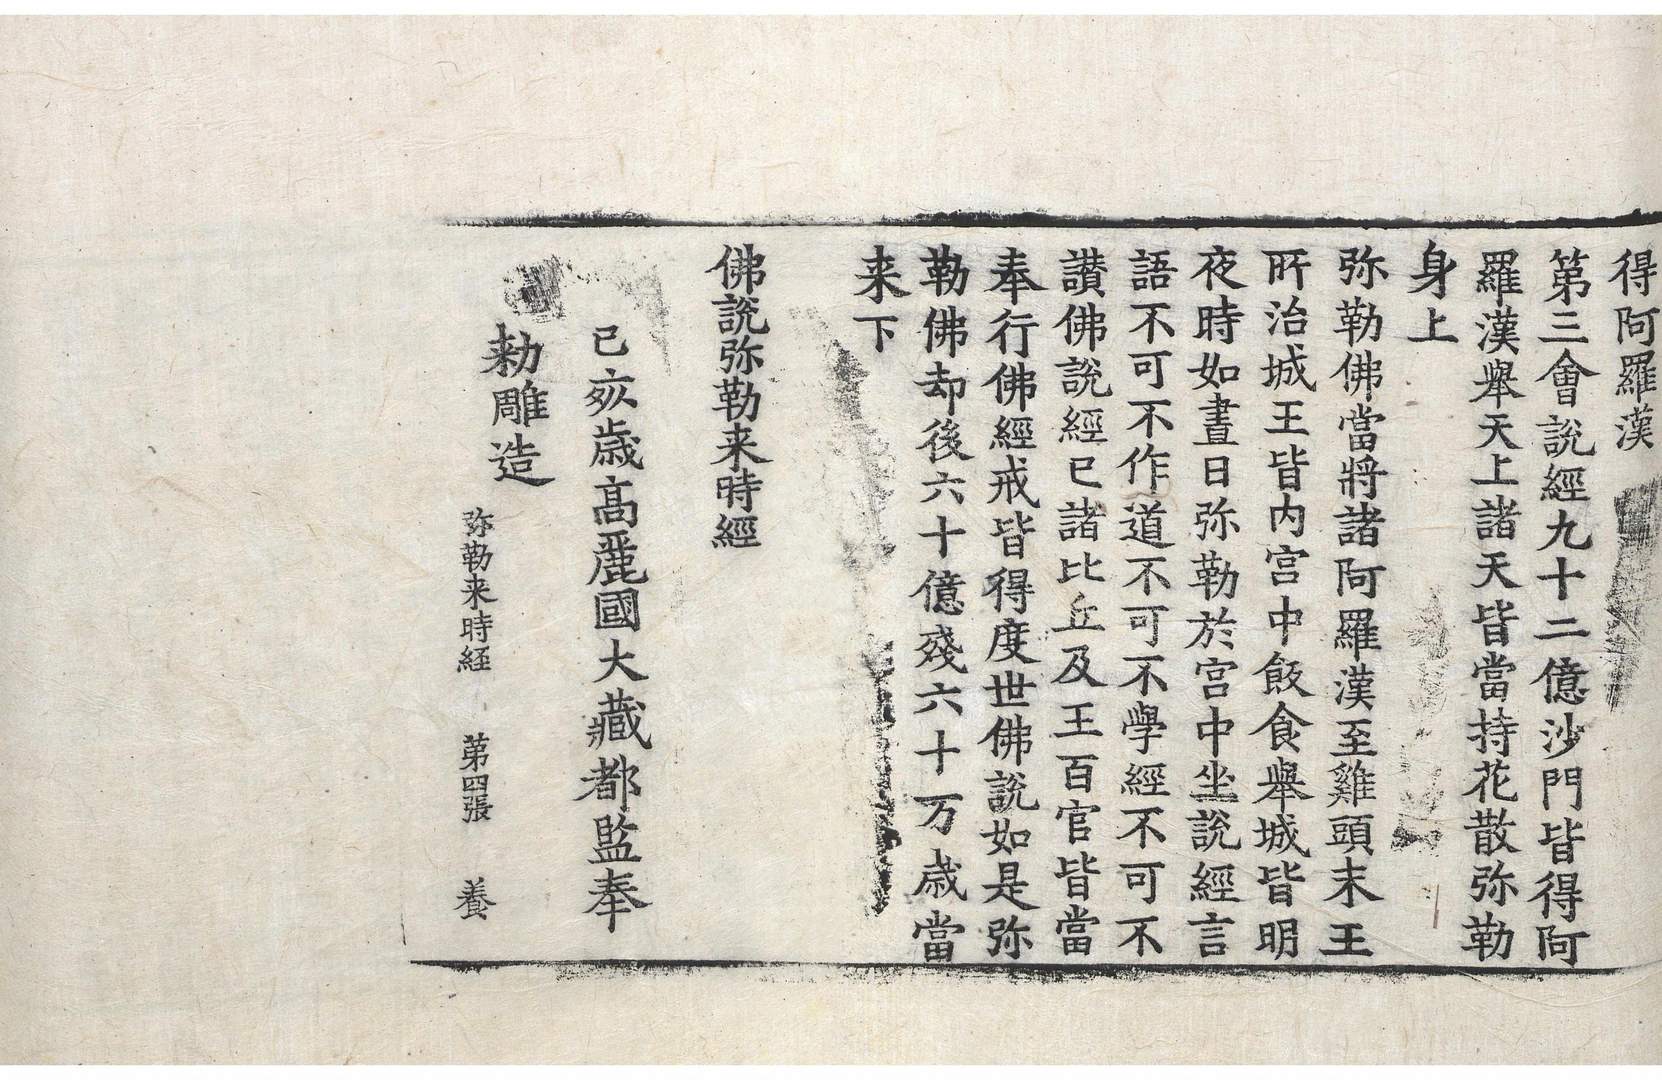 得阿羅漢
第三會說經九十二億沙門皆得阿
羅漢舉天上諸天皆當持花散弥勒
身上
弥勒佛當將諸阿羅漢至雞頭末王
所治城王皆内宫中飯食舉城皆明
夜時如晝日弥勒於宫中坐說經言
語不可不作道不可不學經不可不
讃佛說經已諸比丘及王百官皆當
奉行佛經戒皆得度世佛說如是弥
勒佛却後六十億殘六十万歳當
来下
佛說弥勒来時經
己亥歳高麗國大藏都監奉
勅雕造
弥勒来時経 第四張 養